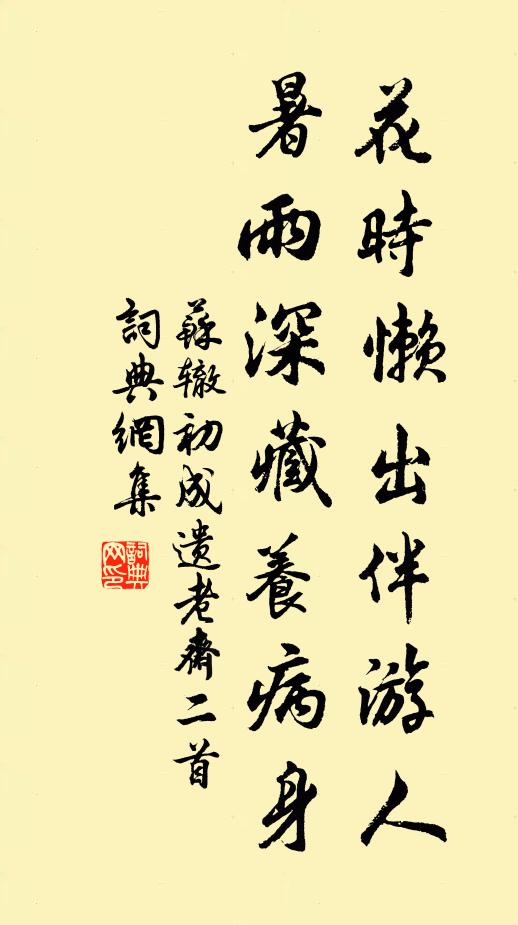 花時懶出伴游人
暑雨深藏養病身
蘇辙初成遗老齋二首
詞典網集
詞典網印